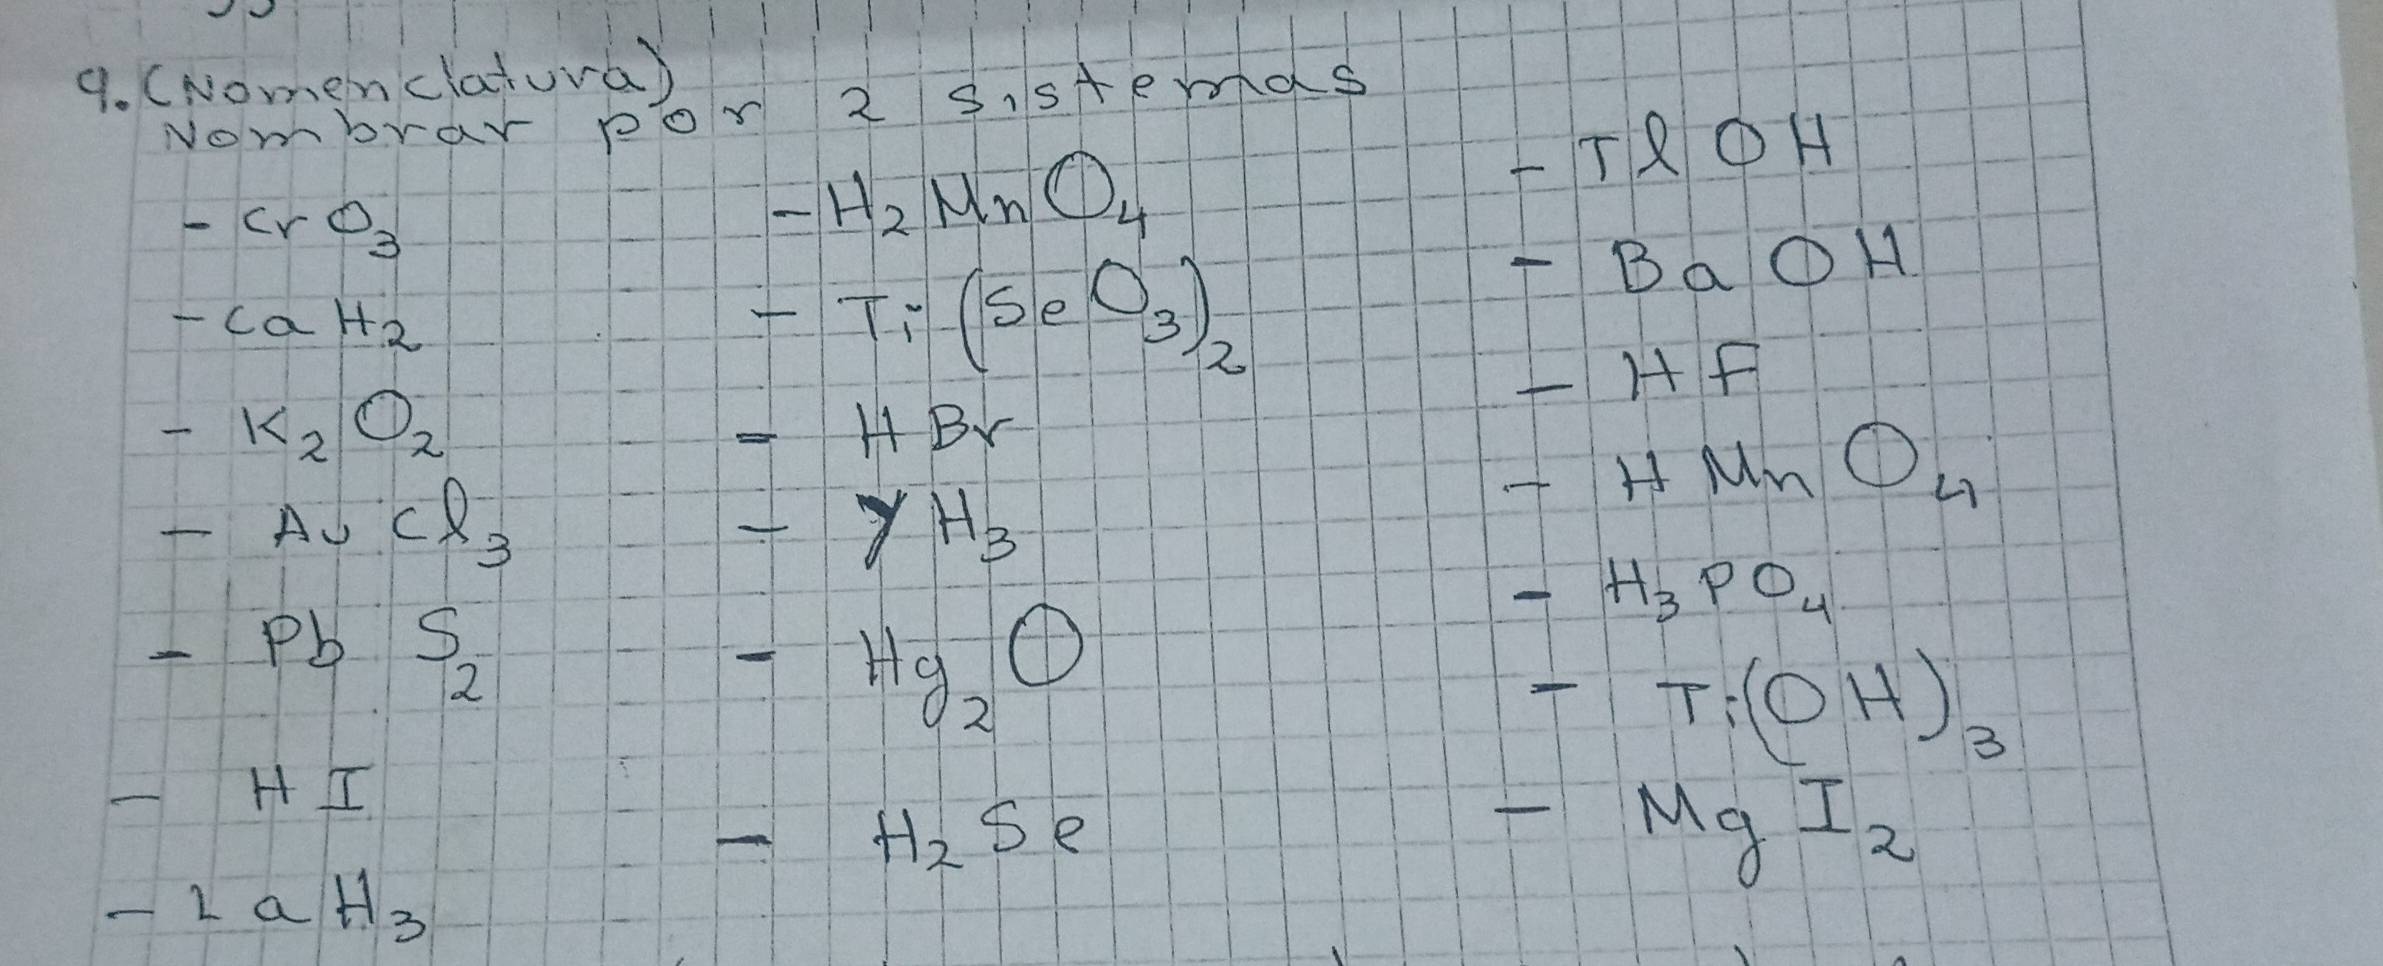 9. (Nomenclatura)
Nombrar por 2 sistemas
- CrO3
- CaH2
- K2O2
- AuCl3
- PbS2
- HI
- LaH3
- H2MnO4
- Ti(SeO3)2
- HBr
- YH3
- Hg2O
- H2Se
- TlOH
- BaOH
- HF
- HMnO4
- H3PO4
- Ti(OH)3
- MgI2